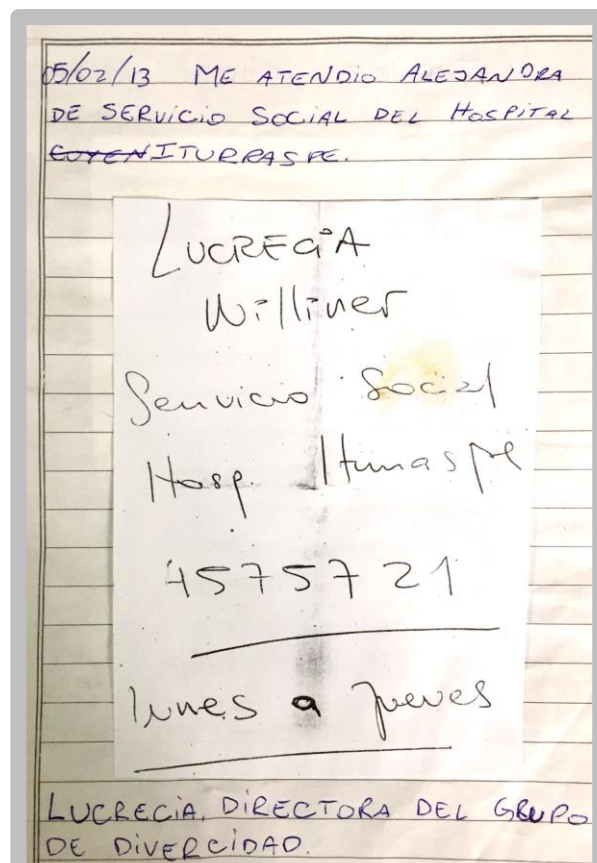 05/02/13 ME ATENDIO ALEJANDRA
DE SERVICIO SOCIAL DEL HOSPITAL
ITURRASPE.
LUCRECIA
Williner
Servicio Social
Hosp. Iturraspe
4575721
lunes a jueves
LUCRECIA, DIRECTORA DEL GRUPO
DE DIVERCIDAD.